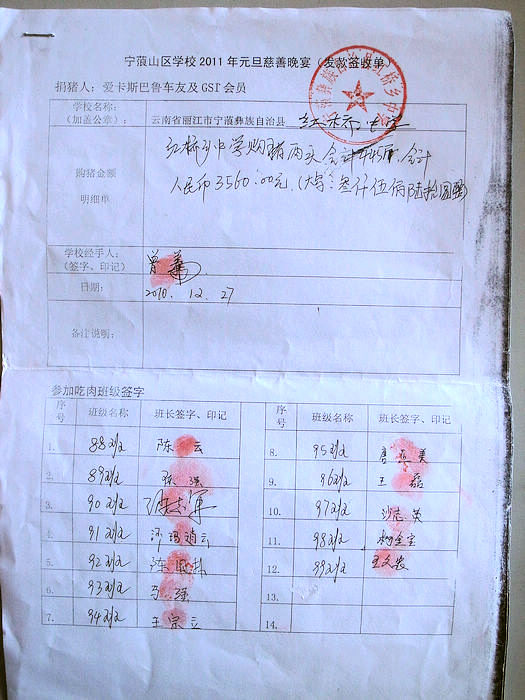 宁蒗山区学校 2011 年元旦慈善晚宴（发款签收单）
捐猪人：爱卡斯巴鲁车友及 GSI 会员
学校名称：
（加盖公章）：
云南省丽江市宁蒗彝族自治县 红桥 中学
购猪金额
明细单
红桥乡中学购猪两头 合计
人民币3560.00元.(大写:叁仟伍佰陆拾圆整)
学校经手人：
（签字、印记）
曾
日期：
2010. 12. 27
备注说明：
参加吃肉班级签字
序号 班级名称 班长签字、印记 序号 班级名称 班长签字、印记
1. 88班 陈 云
2. 89班 张 强
3. 90班 志军
4. 91班
5. 92班
6. 93班 马 强
7. 94班 王宗立
8. 95班 美
9. 96班 王 磊
10. 97班 沙志英
11. 98班 金宝
12. 99班 王文发
13.
14.